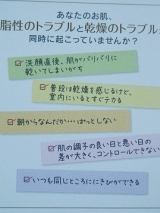 あなたのお肌、
脂性のトラブルと乾燥のトラブル
同時に起こっていませんか?
洗顔直後、肌がバリバリに
乾いてしまいがち
普段は乾燥を感じるけど、
室内にいるとすぐテカる
朝からなんだか……ぱっとしない
肌の調子の良い日と悪い日の
差が大きく、コントロールできない
いつも同じところににきびができる